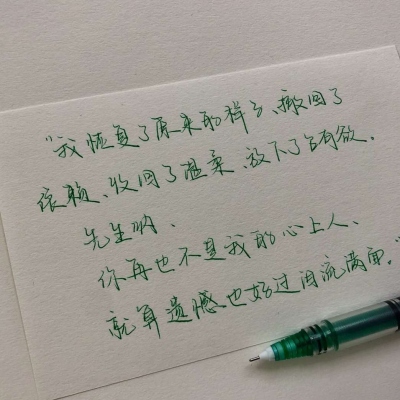 “我恢复了原来的样子、撤回了
依赖、收回了温柔、放下了占有欲。
先生呐、
你再也不是我的心上人、
就算遗憾、也好过泪流满面。”